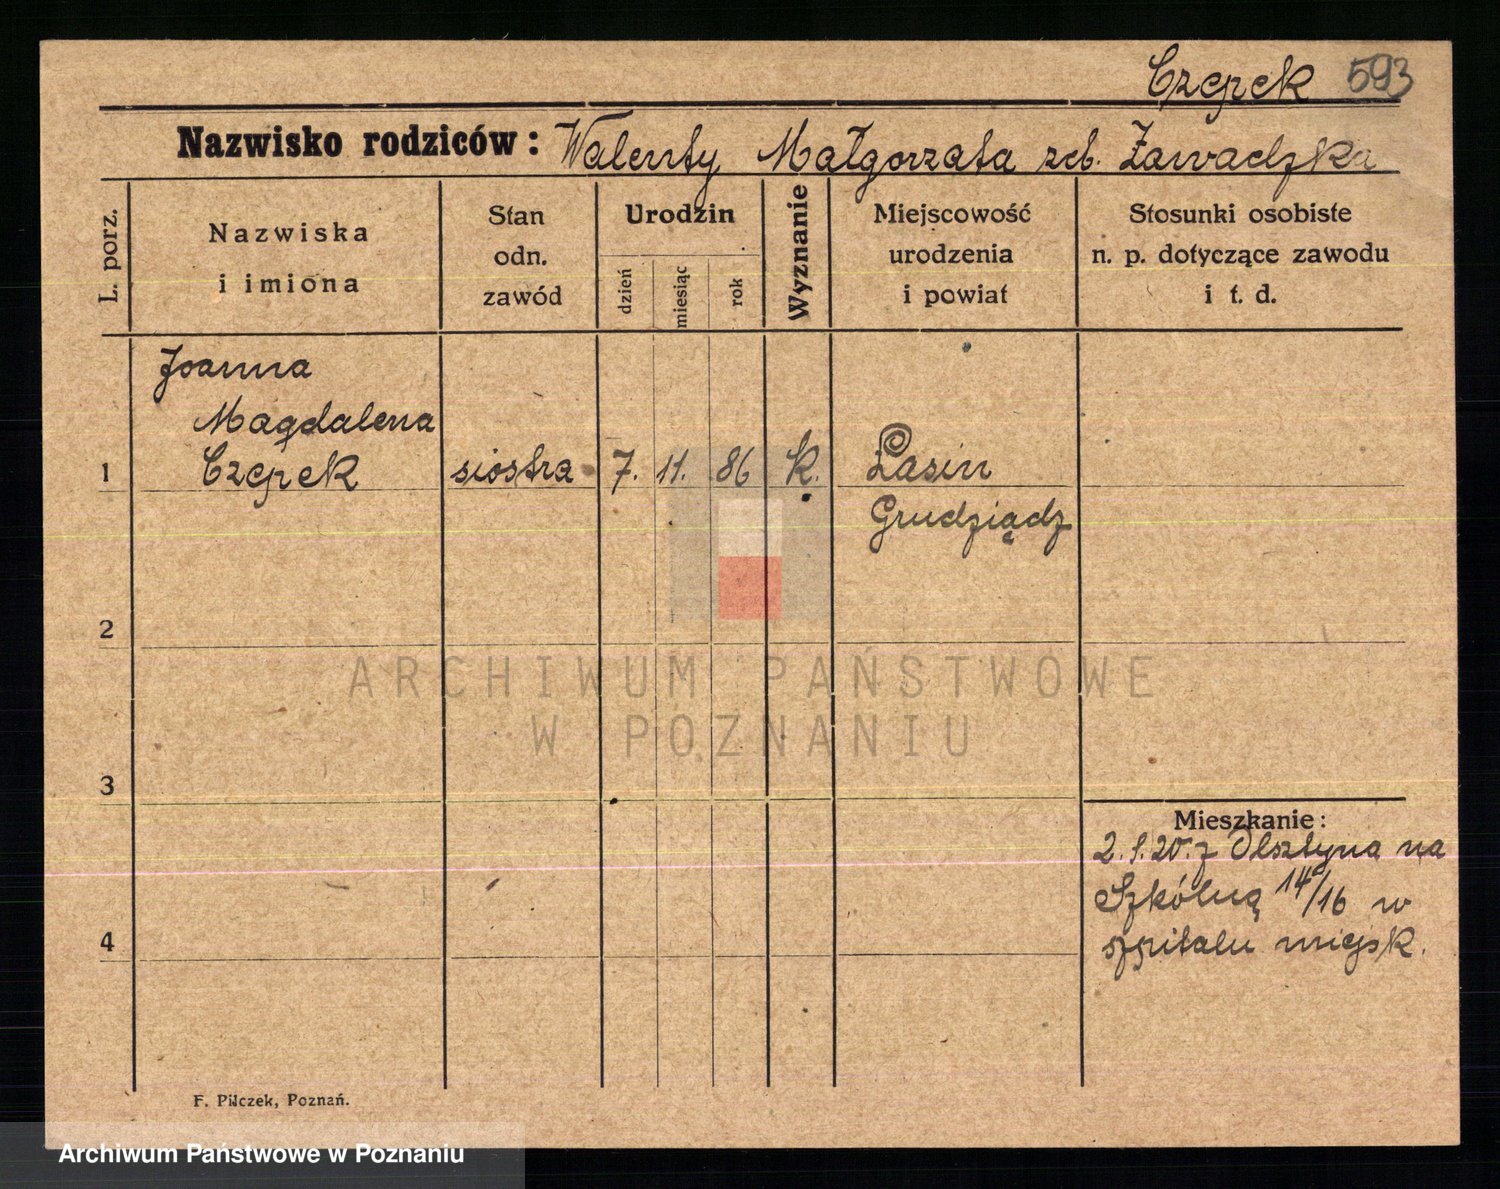 Czepek 593
Nazwisko rodziców: Walenty Małgorzata zd. Zawadzka
L. porz.
Nazwiska
i imiona
Stan
odn.
zawód
Urodzin
dzień
miesiąc
rok
Wyznanie
Miejscowość
urodzenia
i powiat
Stosunki osobiste
n. p. dotyczące zawodu
i t. d.
Joanna
Magdalena
1 Czepek siostra 7. 11. 86 k. Łasin
Grudziądz
2
ARCHIWUM PAŃSTWOWE
W POZNANIU
3
Mieszkanie:
2.1.20. z Olsztyna na
Szkólną 14/16 w
szpitalu miejsk.
4
F. Pilczek, Poznań.
Archiwum Państwowe w Poznaniu